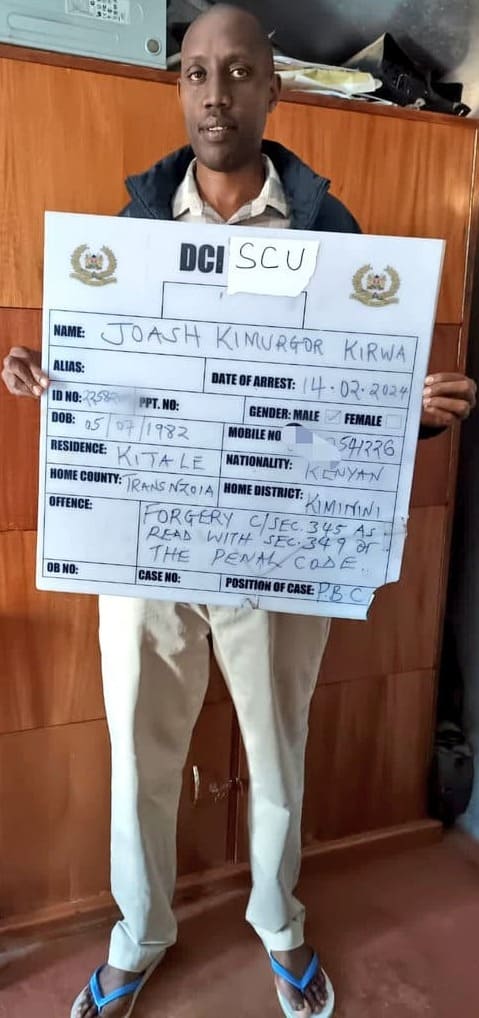 DCI SCU
NAME: JOASH KIMURGOR KIRWA
ALIAS:
DATE OF ARREST: 14.02.2024
ID NO: PPT. NO:
GENDER: MALE FEMALE
DOB: 05/07/1982
MOBILE NO 541226
RESIDENCE: KITALE
NATIONALITY: KENYAN
HOME COUNTY: TRANSNZOIA
HOME DISTRICT: KIMININI
OFFENCE: FORGERY C/SEC.345 AS
READ WITH SEC.349 OF
THE PENAL CODE.
OB NO: CASE NO: POSITION OF CASE: P.B.C